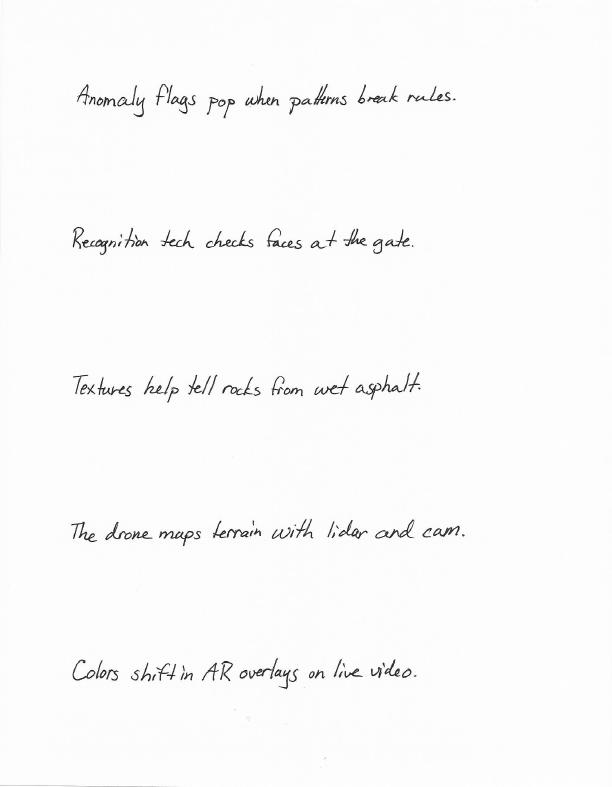 Anomaly flags pop when patterns break rules.
Recognition tech checks faces at the gate.
Textures help tell rocks from wet asphalt.
The drone maps terrain with lidar and cam.
Colors shift in AR overlays on live video.